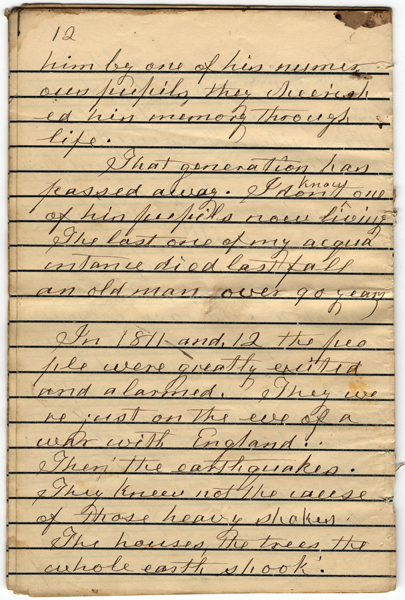 12
him by one of his numer
ous pupils, they cherish
ed his memory through
life.
That generation has
passed away. I don't know one
of his pupils now living
The last one of my acqua
intance died last fall
an old man over 90 years
In 1811 and, 12 the peo
ple were greatly exited
and alarmed. They we
re just on the eve of a
war with England.
Then the earthquakes.
They knew not the cause
of those heavy shakes.
The houses, the trees, the
whole earth shook.